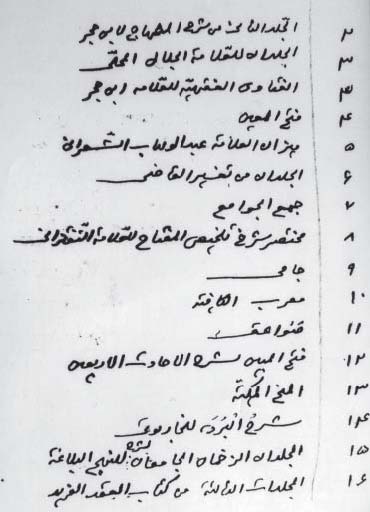 ٢ المجلد الثامن من شرح المنهاج لابن حجر
٣ المجلدان للعلامة الجلال المحلى
٣ الفتاوى الفقهية للعلامة ابن حجر
٤ فتح المعين
٥ ميزان العلامة عبد الوهاب الشعرانى
٦ المجلدان من تفسير القاضى
٧ جمع الجوامع
٨ مختصر شرح تلخيص المفتاح للعلامة التفتازانى
٩ جامى
١٠ معرب الكافية
١١ قواعد
١٢ فتح المبين لشرح الاحاديث الاربعين
١٣ المنح المكية
١٤ شرح البردة للخاربوتى
١٥ المجلدان الزخمان الجامعان لشرح للنهج البلاغة
١٦ المجلدات الثالثة من كتاب العقد الفريد